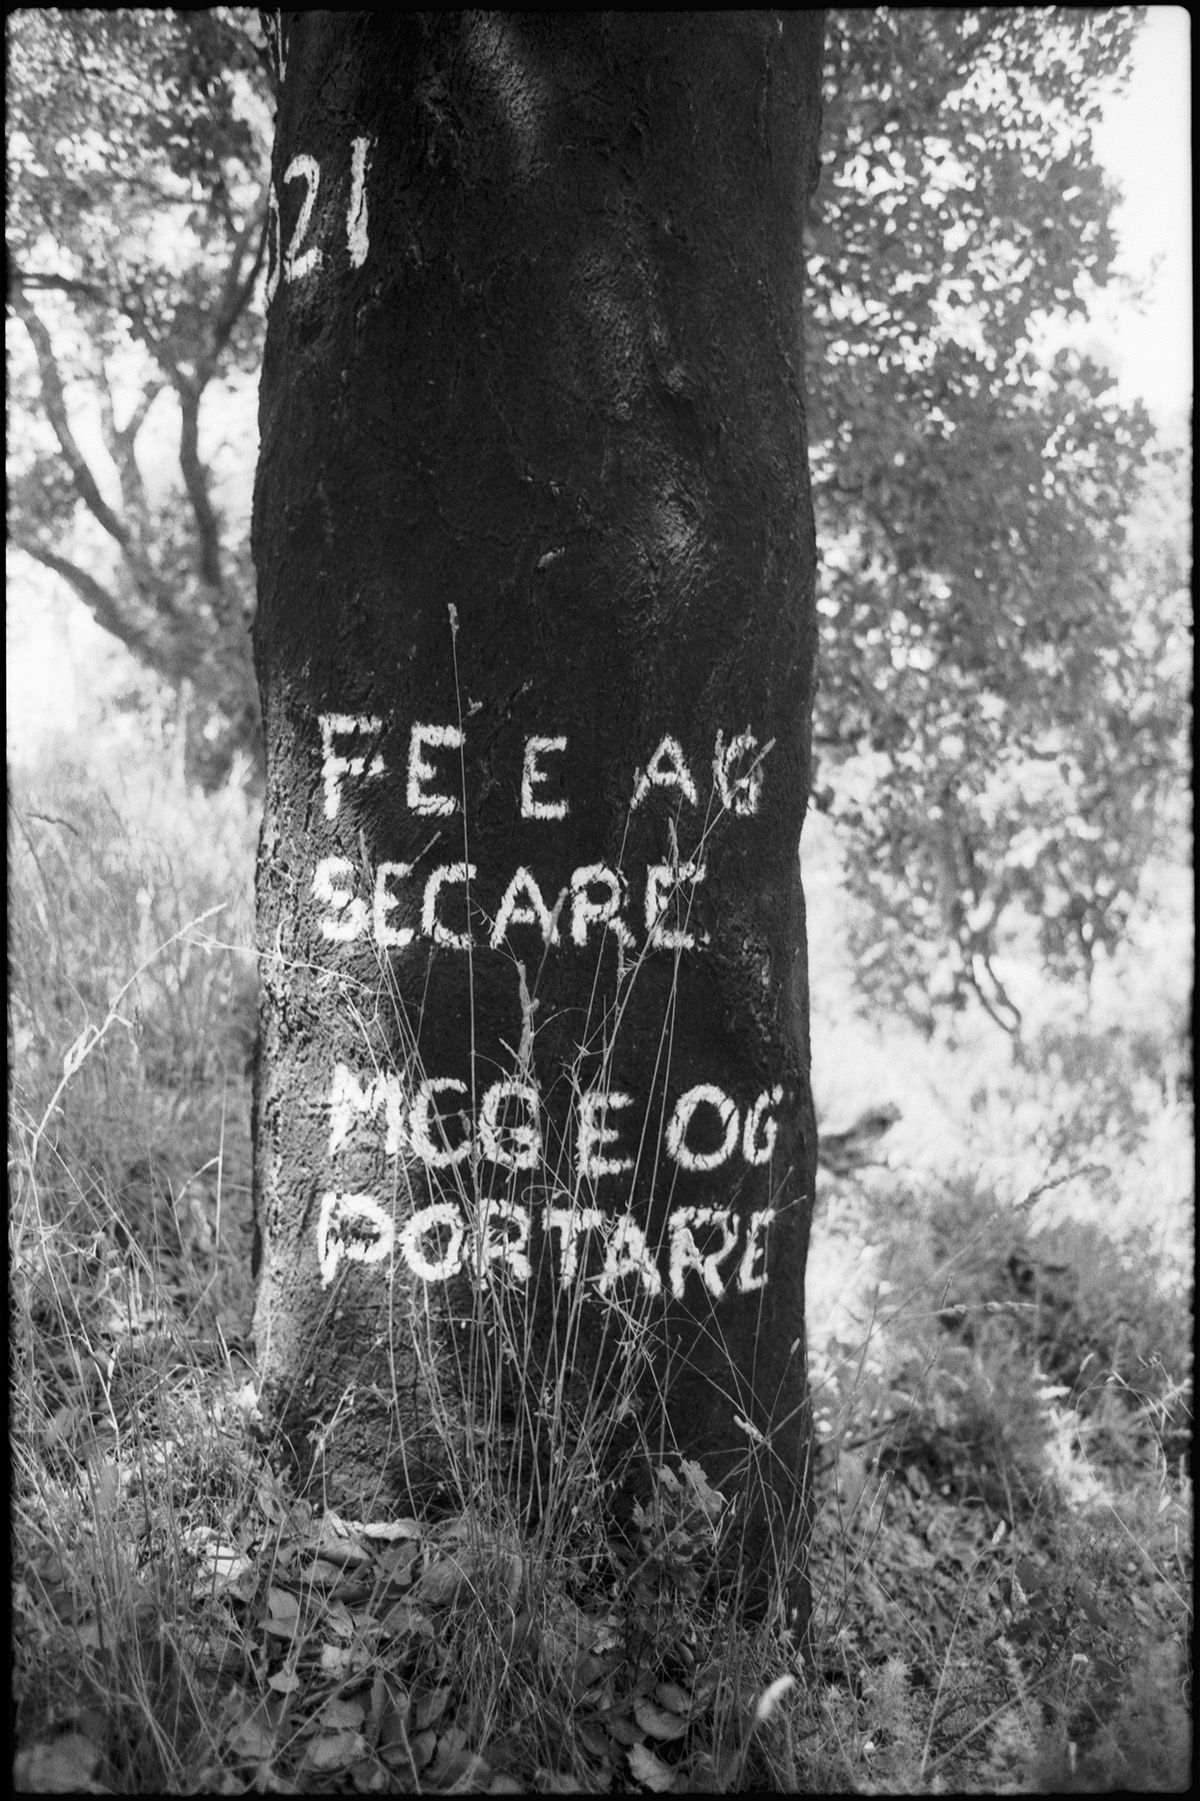 21
FE E AG
SECARE
MCG E OG
PORTARE